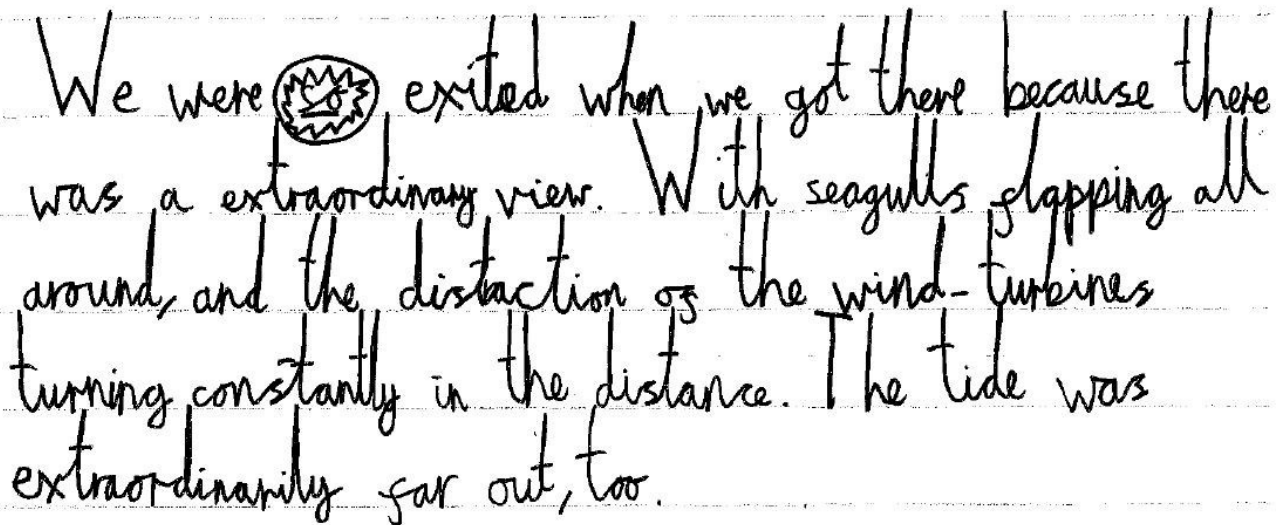 We were exited when we got there because there
was a extraordinary view. With seagulls flapping all
around, and the distaction of the wind-turbines
turning constantly in the distance. The tide was
extraordinarily far out, too.